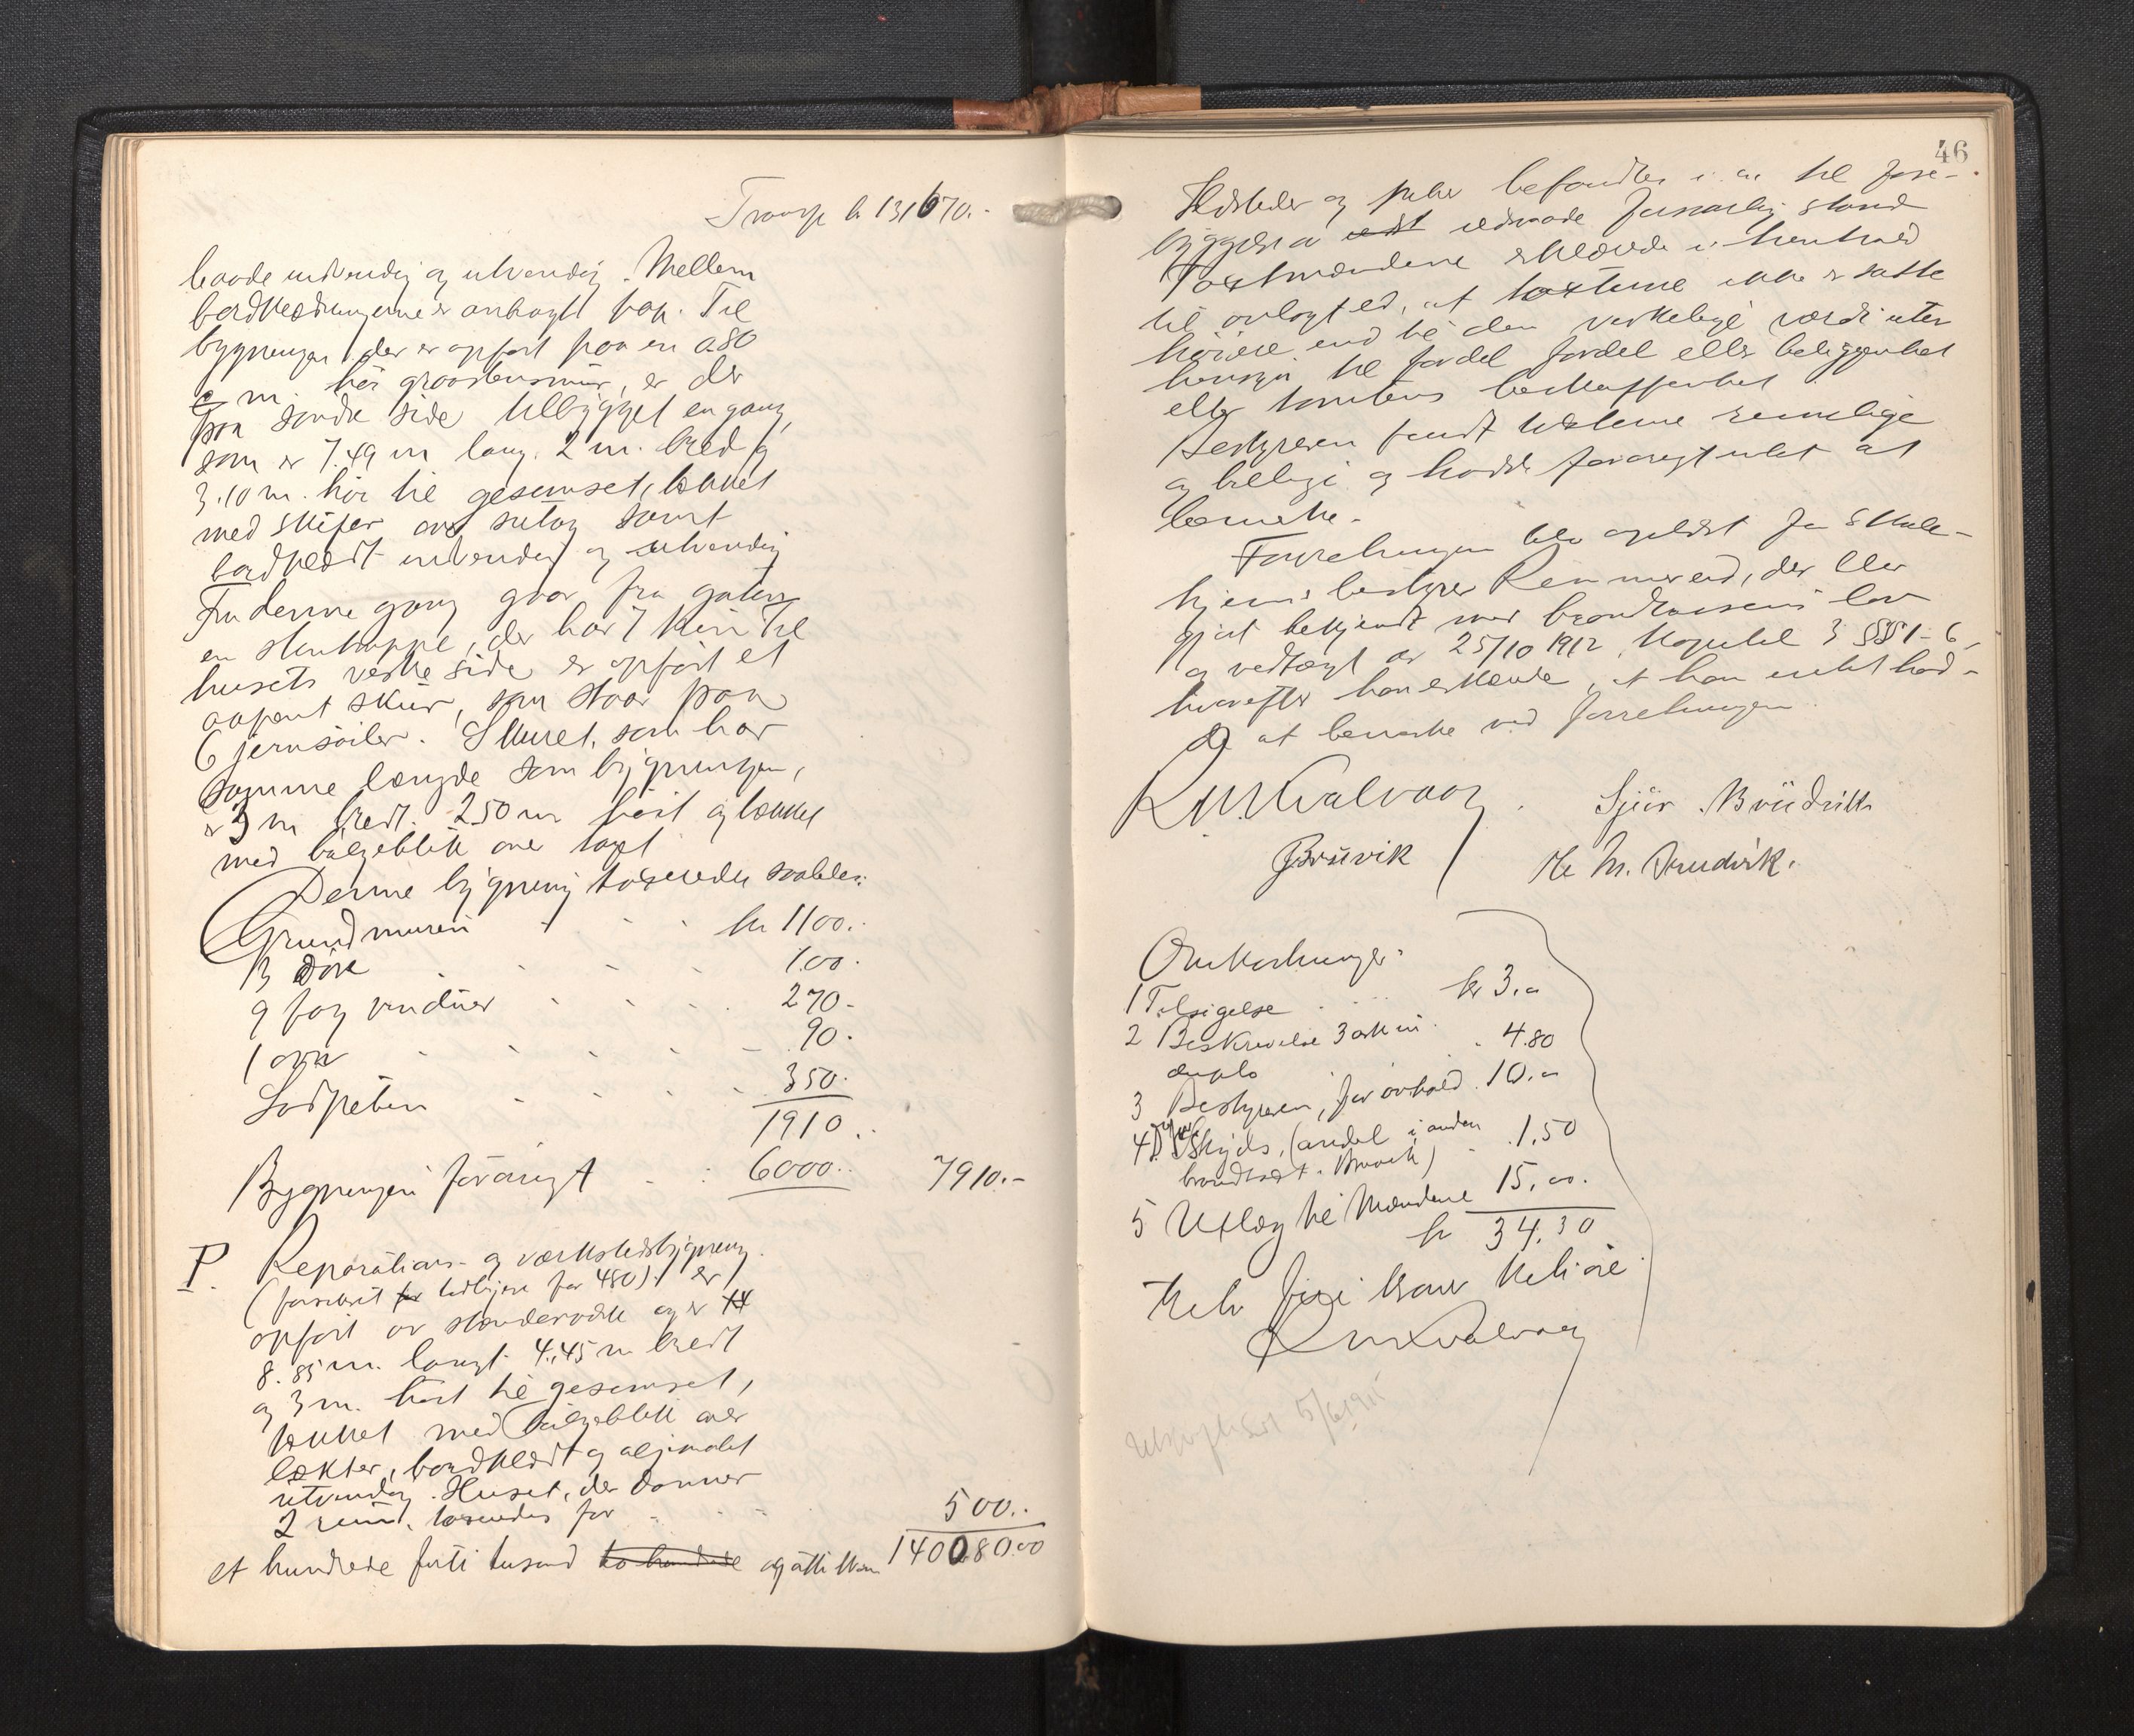 Transp kr 131670.-
baade indvendig og utvendig. Mellem
bordklædningerne er anbragt pap. Til
bygningen, der er opført paa en 0.80
m. høi graastensmur, er der
paa søndre side tilbygget en gang,
som er 7.49 m lang, 2 m. bred og
3.10 m. høi til gesemset, tækket
med skifer over sutag samt
bordklædt indvendig og utvendig
Fra denne gang gaar fra gaten
en stentrappe, der har 7 trin Til
husets vestre side er opført et
aapent skur, som staar paa
6 jernsøiler. Skuret, som har
samme længde som bygningen,
er 3 m bredt. 2.50 m høit og tækket
med bølgeblik over tagt
Denne bygning takseredes saaledes:
Grundmuren kr 1100.-
13 döre 100.-
9 fag vinduer 270.-
1 ovn 90.-
Lodpiben 350.-
1910.-
Bygningen forøvrigt 6000.- 7910.-
P. Reparations- og værkstedsbygning
(forsikret før tidligere for 480), er
opført av stænderverk og er 14
8.85 m. langt. 4.45 m bredt
og 3 m. høit til gesemset,
tækket med bølgeblik over
lækter, bordklædt og oljemalet
utvendig. Huset, der danner
2 rum, takseredes for 500.-
et hundrede førti tusend to hundrede og åtti kron 140080.00
46
Ildsteder og piber befandtes i en til fore-
byggelse av ildsvaade forsvarlig stand
Takstmændene erklærede i henhold
til avlagt ed, at taksterne ikke er satte
høiere end til den virkelige værdi uten
hensyn til fordel fordel eller beliggenhet
eller tomtens beskaffenhet
Bestyreren fandt taksterne rimelige
og billige og hadde forøvrigt intet at
bemerke.
Forretningen blev oplæst for Skule-
hjems bestyrer Remmereid, der blev
gjort bekjendt med brandkassens lov
og vedtægt av 25/10 1912, kapitel 3 §§§ 1-6,
hvorefter han erklærede, at han intet had-
de at bemerke ved forretningen
R M. Kvalvaag. Sjur Bruvik
Bruvik M. M. Bruvik.
Omkostninger:
1 Tilsigelse kr 3.00
2 Beskrivelse 3 ark in
duplo 4.80
3 Bestyreren, for avhold 10.00
4 Skyds, (andel i anden
brandtakst. Bruvik) 1.50
5 Utlæg til Mændene 15.00.
kr 34.30
Tretti fire kroner tretti øre.
R M Kvalvaag
Utskrift 5/6 1915